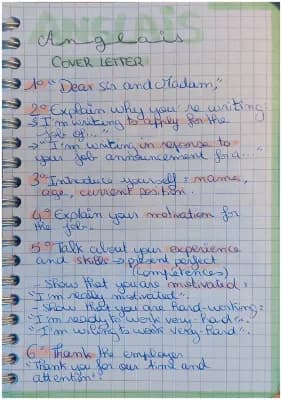 ANGLAIS
Anglais
COVER LETTER
1° "Dear Sir and Madam,"
2° Explain why you're writing:
↳ "I'm writing to apply for the
job of..."
→ "I'm writing in response to
your job announcement for a..."
3° Introduce yourself: name,
age, current position.
4° Explain your motivation for
the job.
5° Talk about your experience
and skills → present perfect
(compétences)
- Show that you are motivated:
"I'm really motivated".
- Show that you are hard-working:
"I'm ready to work very-hard".
"I'm willing to work very-hard".
6° Thank the employer
"Thank you for our time and
attention".